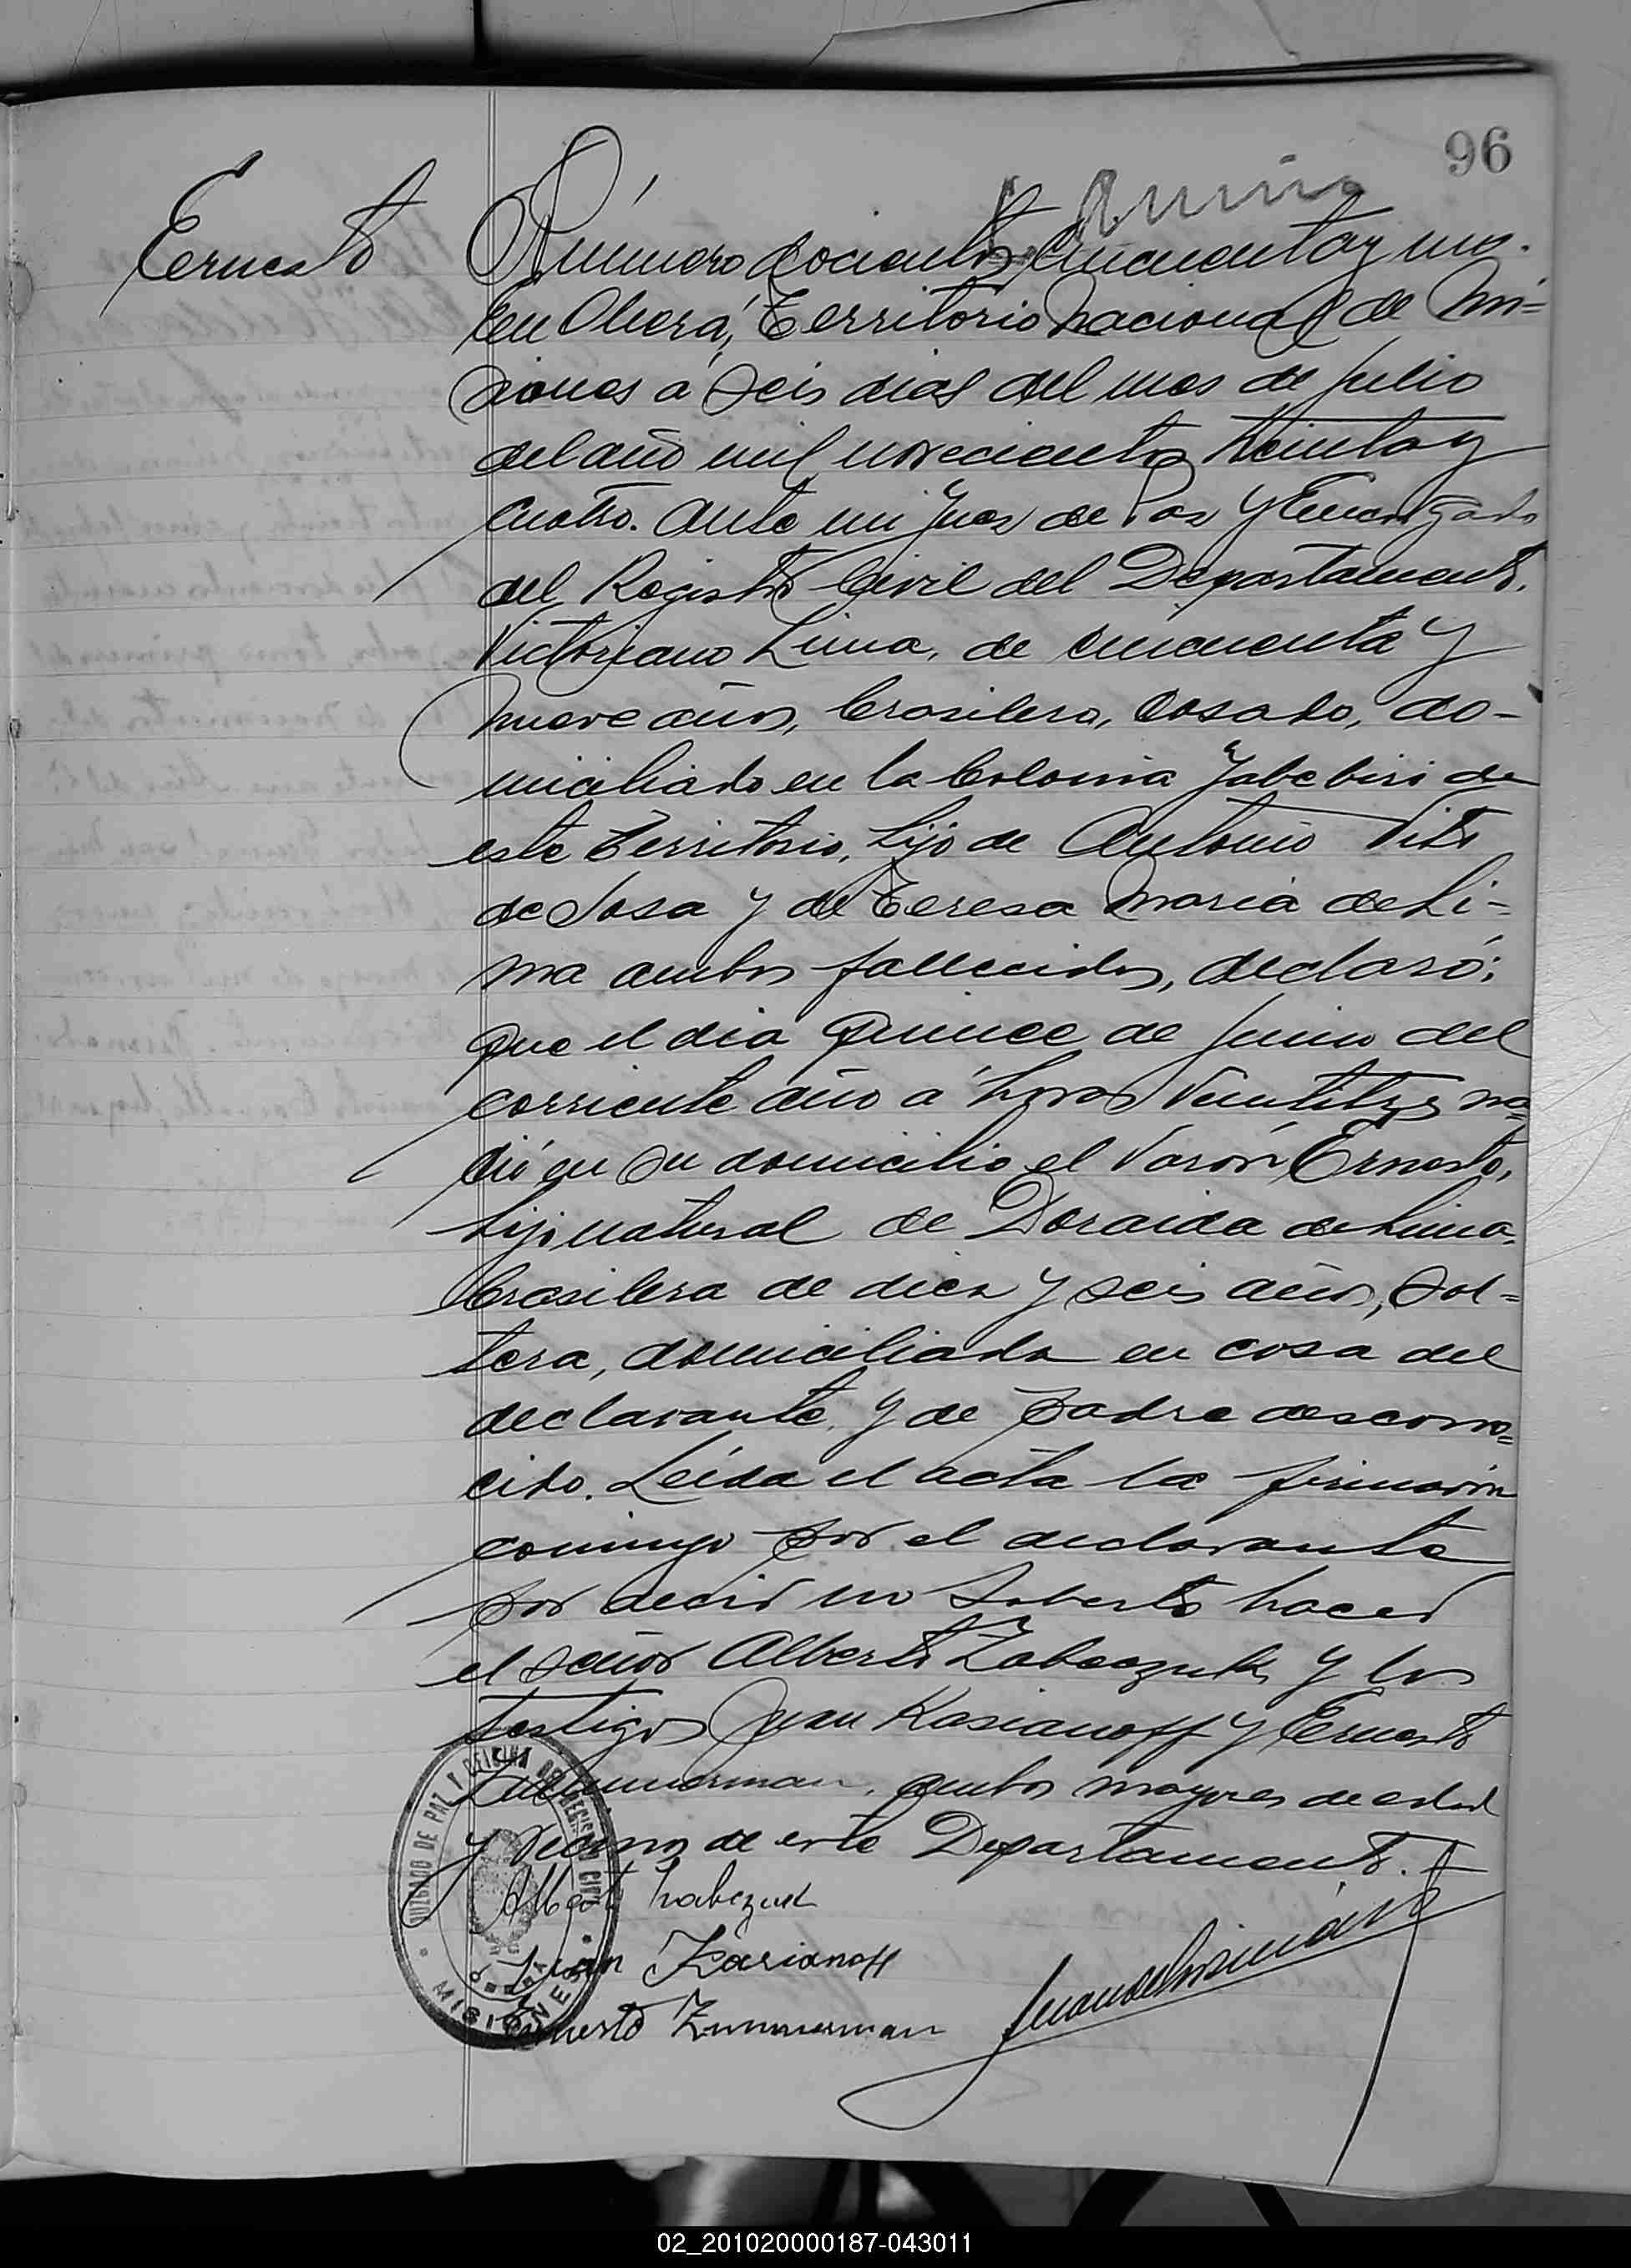 96
Ernesto
Número docientos cincuenta y uno.
En Oberá, Territorio Nacional de Mi=
siones a seis dias del mes de Julio
del año mil novecientos treinta y
cuatro. Ante mi Juez de Paz y Encargado
del Registro Civil del Departamento.
Victoriano Lima, de cincuenta y
nueve años, brasilero, casado, do-
miciliado en la Colonia Yabebiri de
este Territorio, hijo de Antonio Vito
de Sosa y de Teresa Maria de Li-
ma ambos fallecidos, declaró:
que el dia quince de Junio del
corriente año a horas veintitres na=
ció en su domicilio el varón Ernesto,
hijo natural de Doraida de Lima,
brasilera de diez y seis años, sol=
tera, domiciliada en casa del
declarante, y de padre descono=
cido. Leida el acta la firmarón
conmigo por el declarante
por decir no saberlo hacer
el señor Alberto y los
testigos Juan Kasianoff y Ernesto
Zimmerman, ambos mayores de edad
y vecinos de este Departamento.
JUZGADO DE PAZ Y OFICINA DEL REGISTRO CIVIL
OBERA
MISIONES
Albert
Juan Kasianoff
Ernesto Zimmerman
02_201020000187-043011